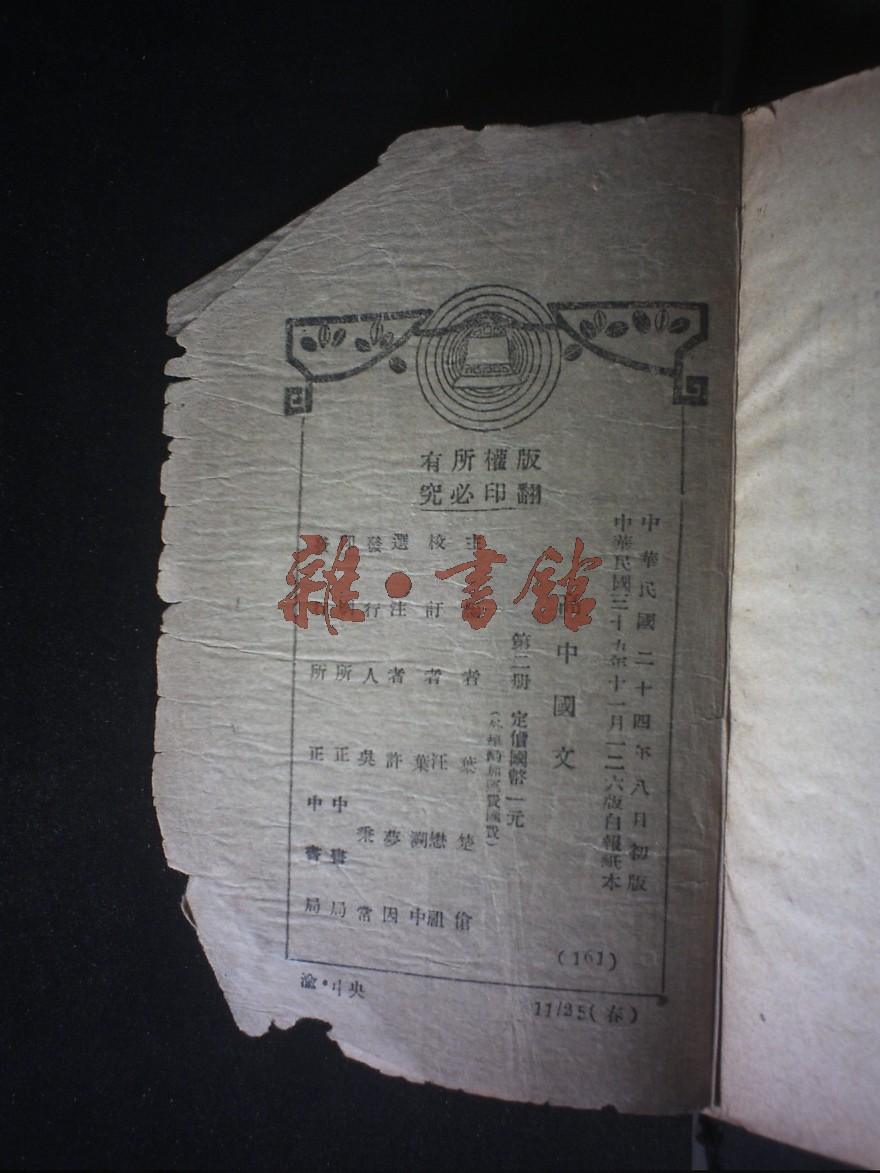 版權所有
翻印必究
中華民國二十四年八月初版
中華民國三十五年十一月一二六版白報紙本
中國文
第二册 定價國幣一元
主 者 葉楚傖
校訂者 汪懋祖 葉溯中
選注者 許夢因
發行人 吳秉常
所 正中書局
所 正中書局
(161)
渝·中央
11/25(春)
雜·書館